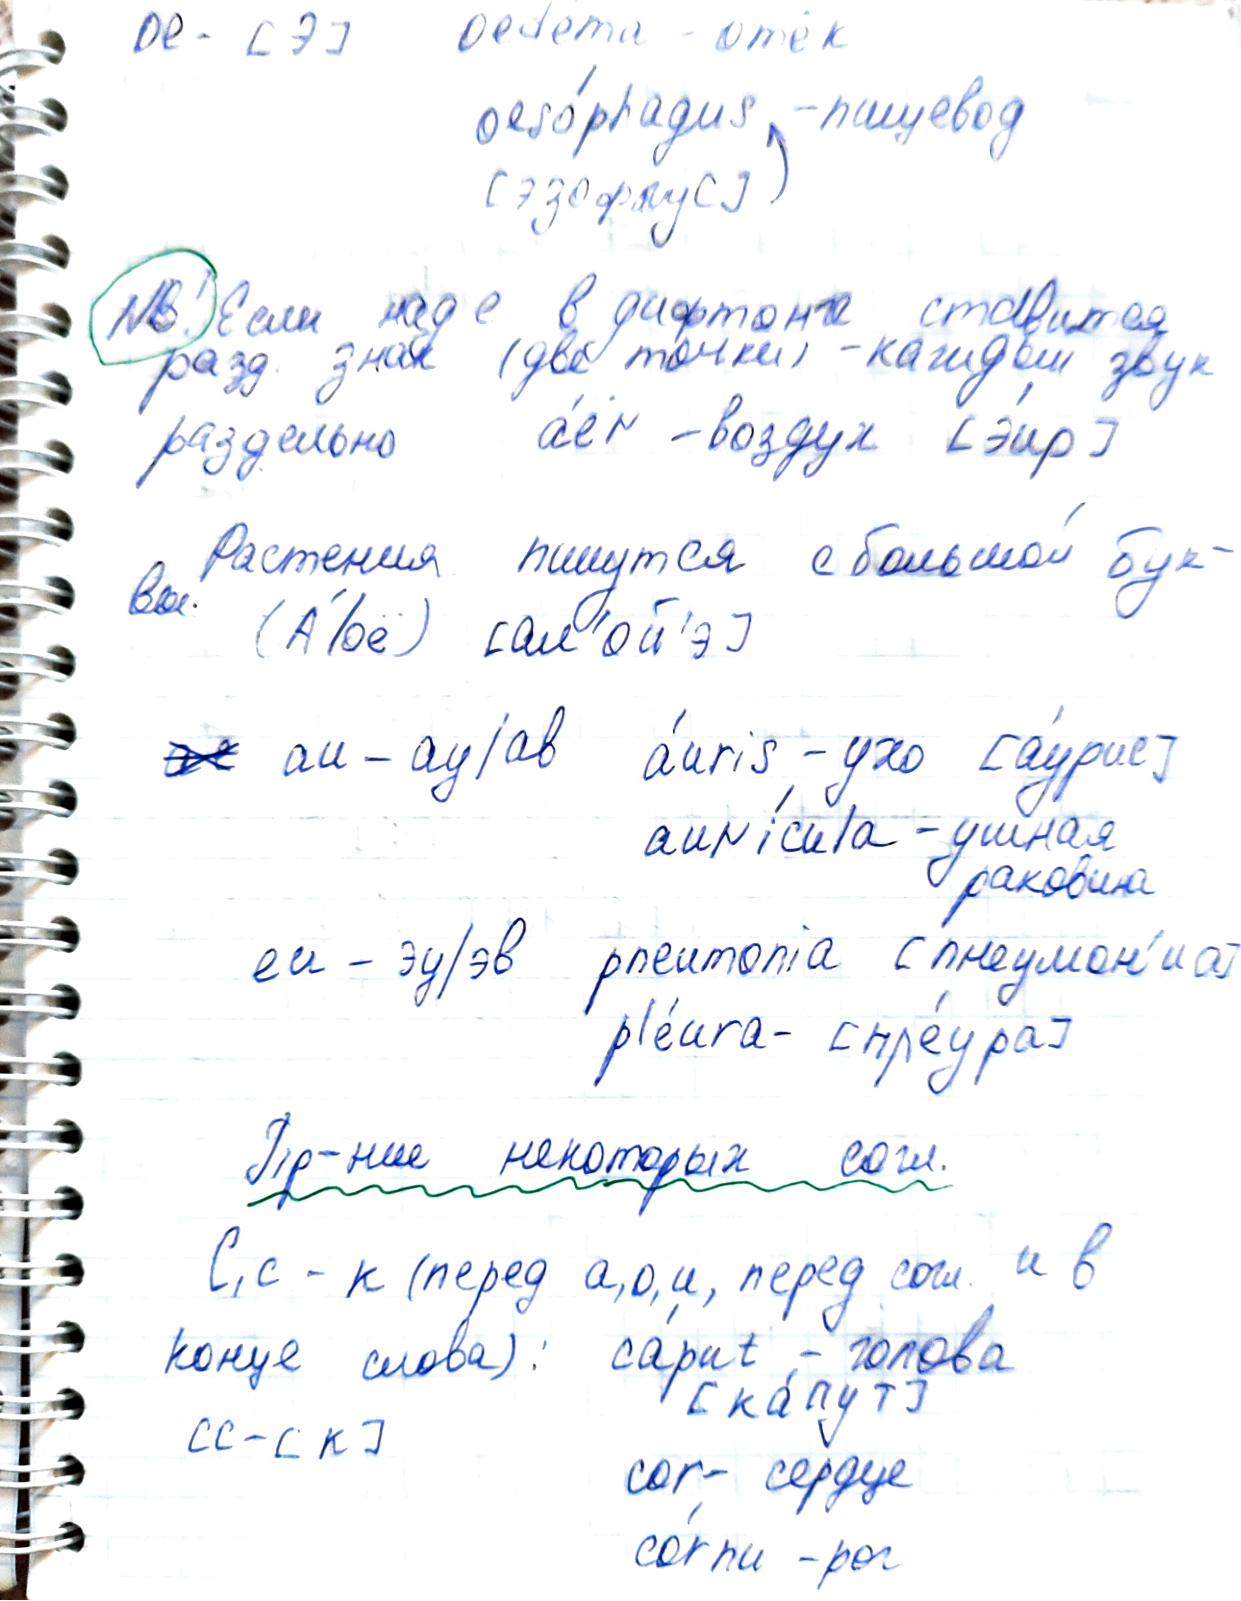 oe - [э] oedema - отёк
oesóphagus - пищевод
NB! Если над е в дифтонге ставится
разд. знак (две точки) - каждый звук
раздельно áër - воздух [эир]
Растения пишутся с большой бук-
вы.
(Áloë) [ал'ой'э]
au - ау/ав áuris - ухо [áурис]
aurícula - ушная
раковина
eu - эу/эв pneumonia [пнеумон'иа]
pléura - [плéура]
Пр-ние некоторых согл.
C, c - к (перед a, o, u, перед согл. и в
конце слова): cáput - голова
[кáпут]
cc - [к]
cor - сердце
córnu - рог